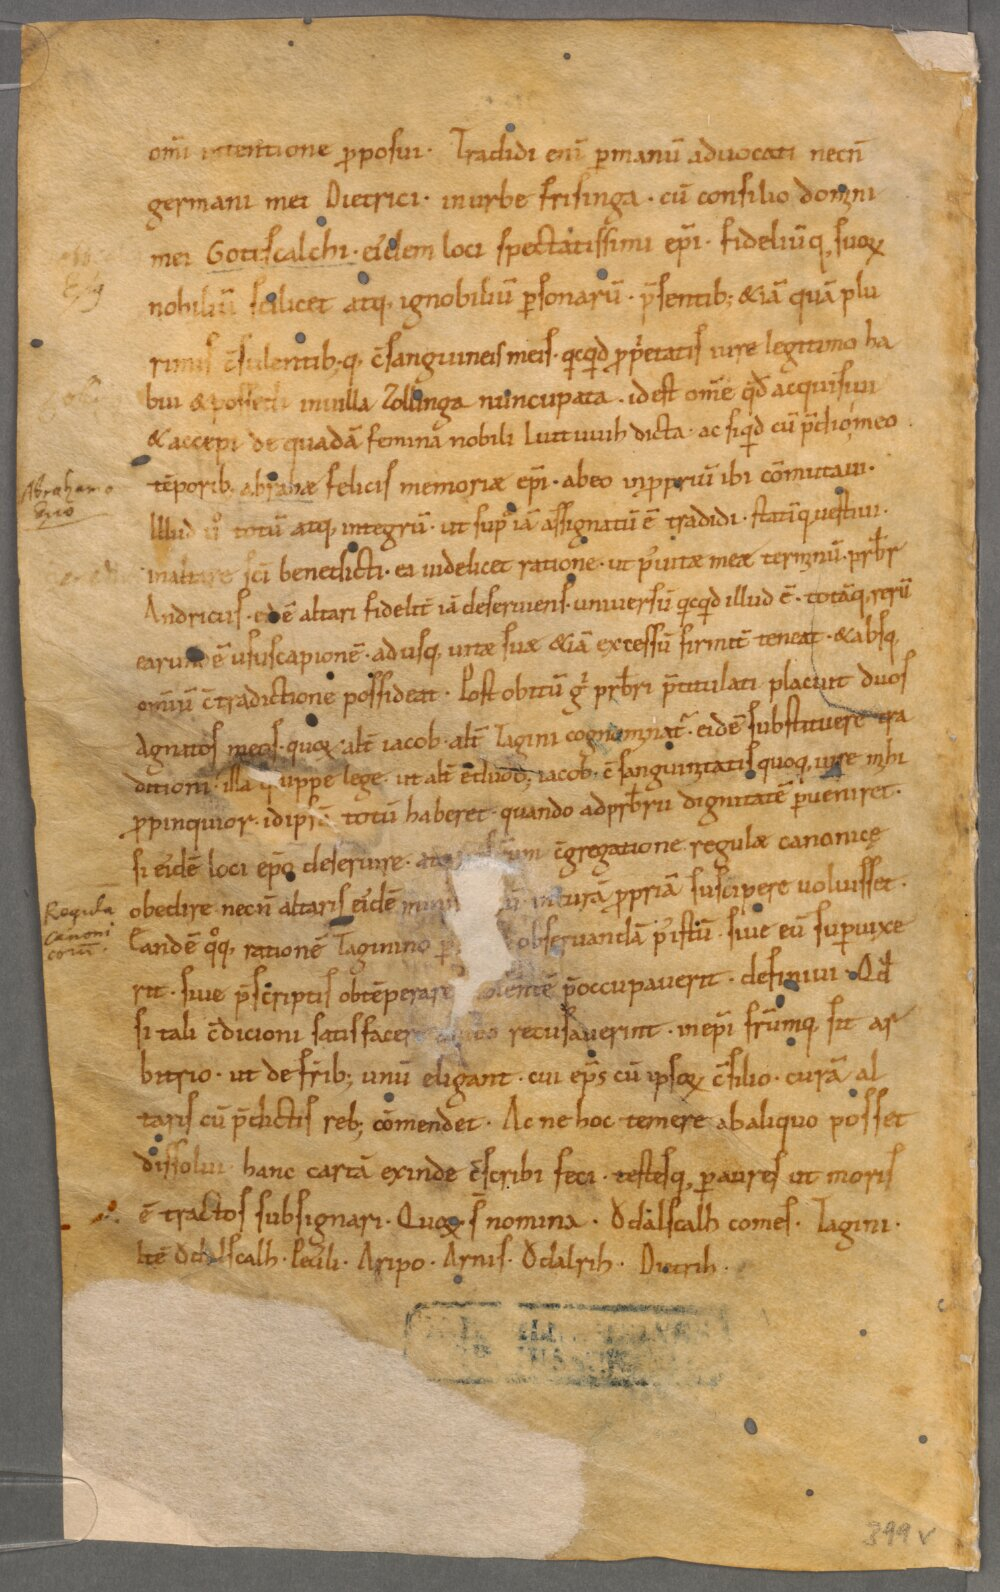 om̅i intentione ꝓposui· Tradidi eni̅ ꝑmanu̅ aduocati necn̅
germani mei Dietrici· inurbe frisinga· cu̅ consilio domni
mei Gotiscalchi· eide̅m loci spectatissimi ep̅i· fideliu̅q, suoꝝ
nobiliu̅ scilicet atq, ignobiliu̅ ꝑsonaru̅· p̅sentib; &ia̅ qua̅ plu
rimis c̅sulentib;q, c̅sanguineis meis· qcq̅d ꝓp̅etatis iure legitimo ha
bui & possedi inuilla Zollinga nuncupata· id est om̅e q̅d acquisiui
& accepi de quada̅ femina nobili Liutuuih dicta· ac siq̅d cu̅ p̅dio meo
te̅porib, abrahæ felicis memoriæ ep̅i· abeo inꝓpriu̅ ibi co̅mutaui·
Illud totu̅ atq, integru̅· ut sup̅ ia̅ assignatu̅ e̅ tradidi· statu̅q uestiui·
inaltare sc̅i benedicti· ea uidelicet ratione· ut p̅ uitæ meæ terminu̅· prb̅r
Andricus· eide̅ altari fidelit̅ ia̅ deseruiens· uniuersu̅ qcq̅d illud e̅· tota̅q, reru̅
earunde̅ ususcapione̅· adusq, uitæ suæ &ia̅ excessu̅ firmit̅ teneat· &absq,
om̅iu̅ c̅tradictione possideat· Post obitu̅ g̅ prb̅ri p̅titulati placuit duos
Agnatos meos· quoꝝ alt̅ iacob· alt̅ Tagini cognominat̅· eide̅ substituere tra
ditioni· illa uppe lege ut alt̅ iacob· c̅sanguinitatis quoq, iure mihi
ꝓpinquior· id ipsu̅ totu̅ haberet· quando adprb̅rii dignitate̅ ꝑueniret·
si eide̅ loci ep̅o deseruire· c̅gregatione regulæ canonicę
obedire necn̅ altaris eide̅ incura̅ ꝓpria̅ suscipere uoluisset·
Eande̅ qq, ratione̅ Taginino obseruanda̅ p̅istu̅· siue eu̅ suꝑuixe
rit· siue p̅scriptis obte̅perare p̅occupauerit· definiui· Qd̅
si tali c̅dicioni satisfacere recusauerint· inep̅i fr̅umq, sit ar
bitrio· ut de fr̅ib; unu̅ eligant· cui ep̅s cu̅ ipsoꝝ c̅silio· cura̅ al
taris cu̅ p̅dictis reb; co̅mendet· Ac ne hoc temere abaliquo posset
dissolui· hanc carta̅ exinde c̅scribi feci· testesq, ꝑaures ut moris
e̅ tractos subsignari· Quoꝝ s̅ nomina· Odalscalh comes· Tagini·
Ite̅ Odalscalh· Pecili· Aripo· Arnis· Odalrih· Dietrih·
Abrahamo
Regula
Canoni
coru̅·
399 v